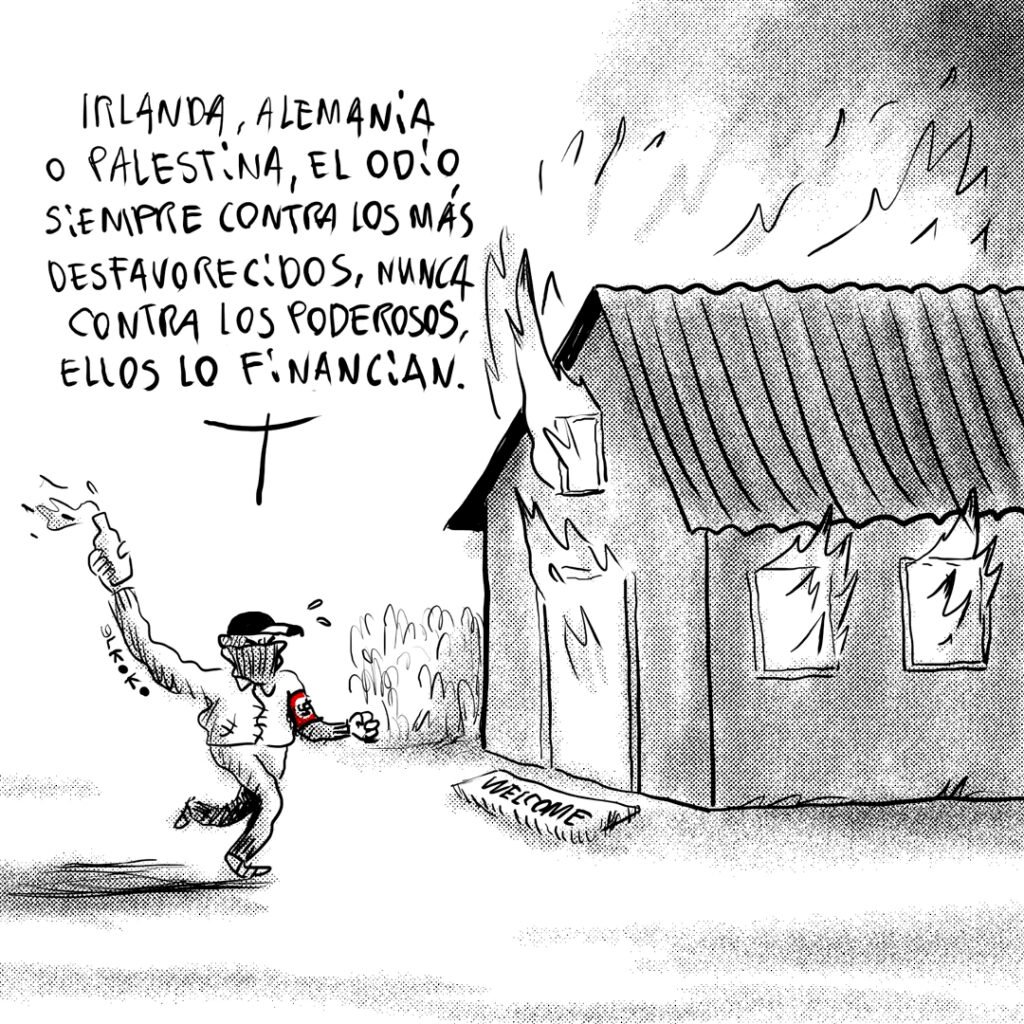 IRLANDA, ALEMANIA
O PALESTINA, EL ODIO,
SIEMPRE CONTRA LOS MÁS
DESFAVORECIDOS, NUNCA
CONTRA LOS PODEROSOS,
ELLOS LO FINANCIAN.
ELKOKO
WELCOME